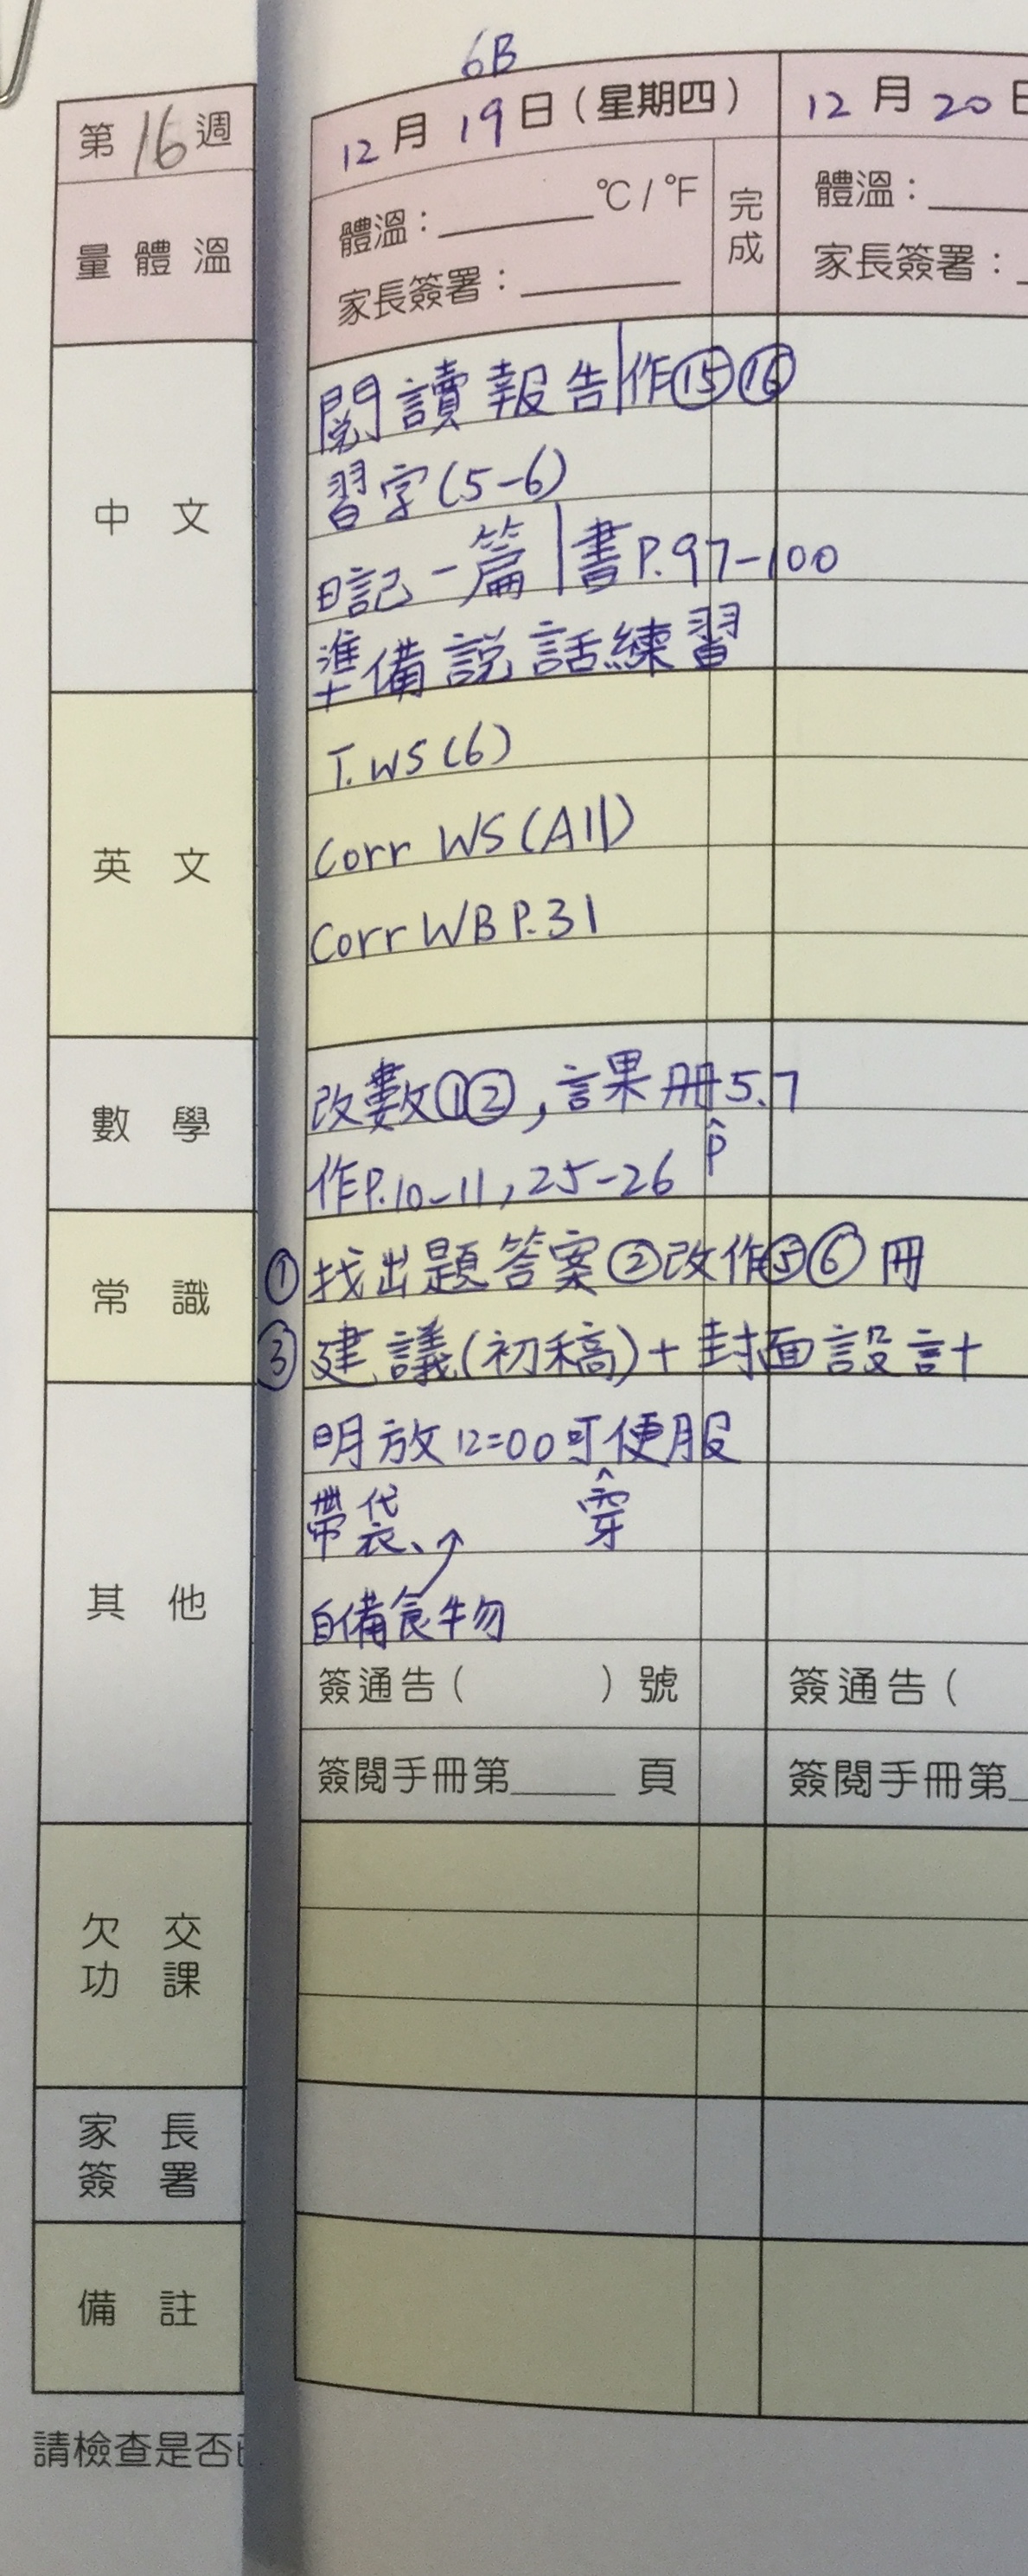 6B
第16週
12月19日(星期四)
12月20日
量體溫
體溫:______°C/°F
完成
家長簽署:______
體溫:
家長簽署:
中文
閱讀報告|作⑮⑯
習字(5-6)
日記一篇|書P.97-100
準備說話練習
英文
T.WS(6)
Corr WS(All)
Corr WB P.31
數學
改數①②,課冊5.7
^P
作P.10-11,25-26
常識
①找出題答案②改作⑤⑥冊
③建議(初稿)+封面設計
其他
明放12:00可便服
^穿
帶袋、↗
自備食物
簽通告( )號
簽通告(
簽閱手冊第______頁
簽閱手冊第
欠交
功課
家長
簽署
備註
請檢查是否